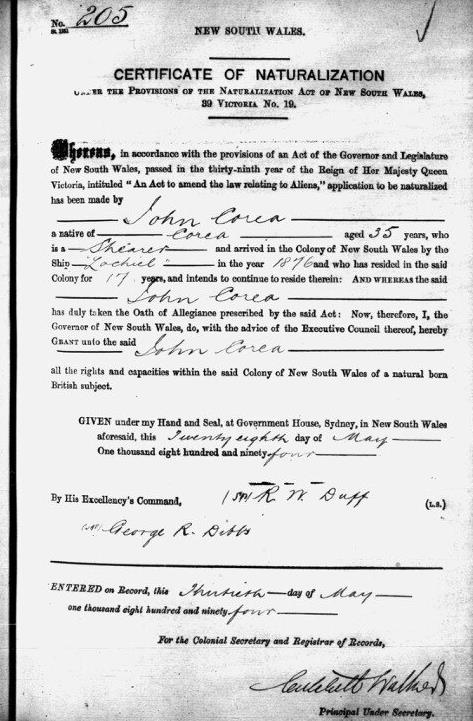 No. 205
NEW SOUTH WALES.
CERTIFICATE OF NATURALIZATION
UNDER THE PROVISIONS OF THE NATURALIZATION ACT OF NEW SOUTH WALES,
39 VICTORIA No. 19.
Whereas, in accordance with the provisions of an Act of the Governor and Legislature
of New South Wales, passed in the thirty-ninth year of the Reign of Her Majesty Queen
Victoria, intituled "An Act to amend the law relating to Aliens," application to be naturalized
has been made by
John Corea
a native of Corea aged 35 years, who
is a Shearer and arrived in the Colony of New South Wales by the
Ship "Lochiel" in the year 1876 and who has resided in the said
Colony for 17 years, and intends to continue to reside therein: AND WHEREAS the said
John Corea
has duly taken the Oath of Allegiance prescribed by the said Act: Now, therefore, I, the
Governor of New South Wales, do, with the advice of the Executive Council thereof, hereby
GRANT unto the said
John Corea
all the rights and capacities within the said Colony of New South Wales of a natural born
British subject.
GIVEN under my Hand and Seal, at Government House, Sydney, in New South Wales
aforesaid, this Twenty eighth day of May
One thousand eight hundred and ninety four
(sd) R. W. Duff
By His Excellency's Command, (L.S.)
(sd) George R. Dibbs
ENTERED on Record, this Thirtieth day of May
one thousand eight hundred and ninety four
For the Colonial Secretary and Registrar of Records,
Critchett Walker
Principal Under Secretary.